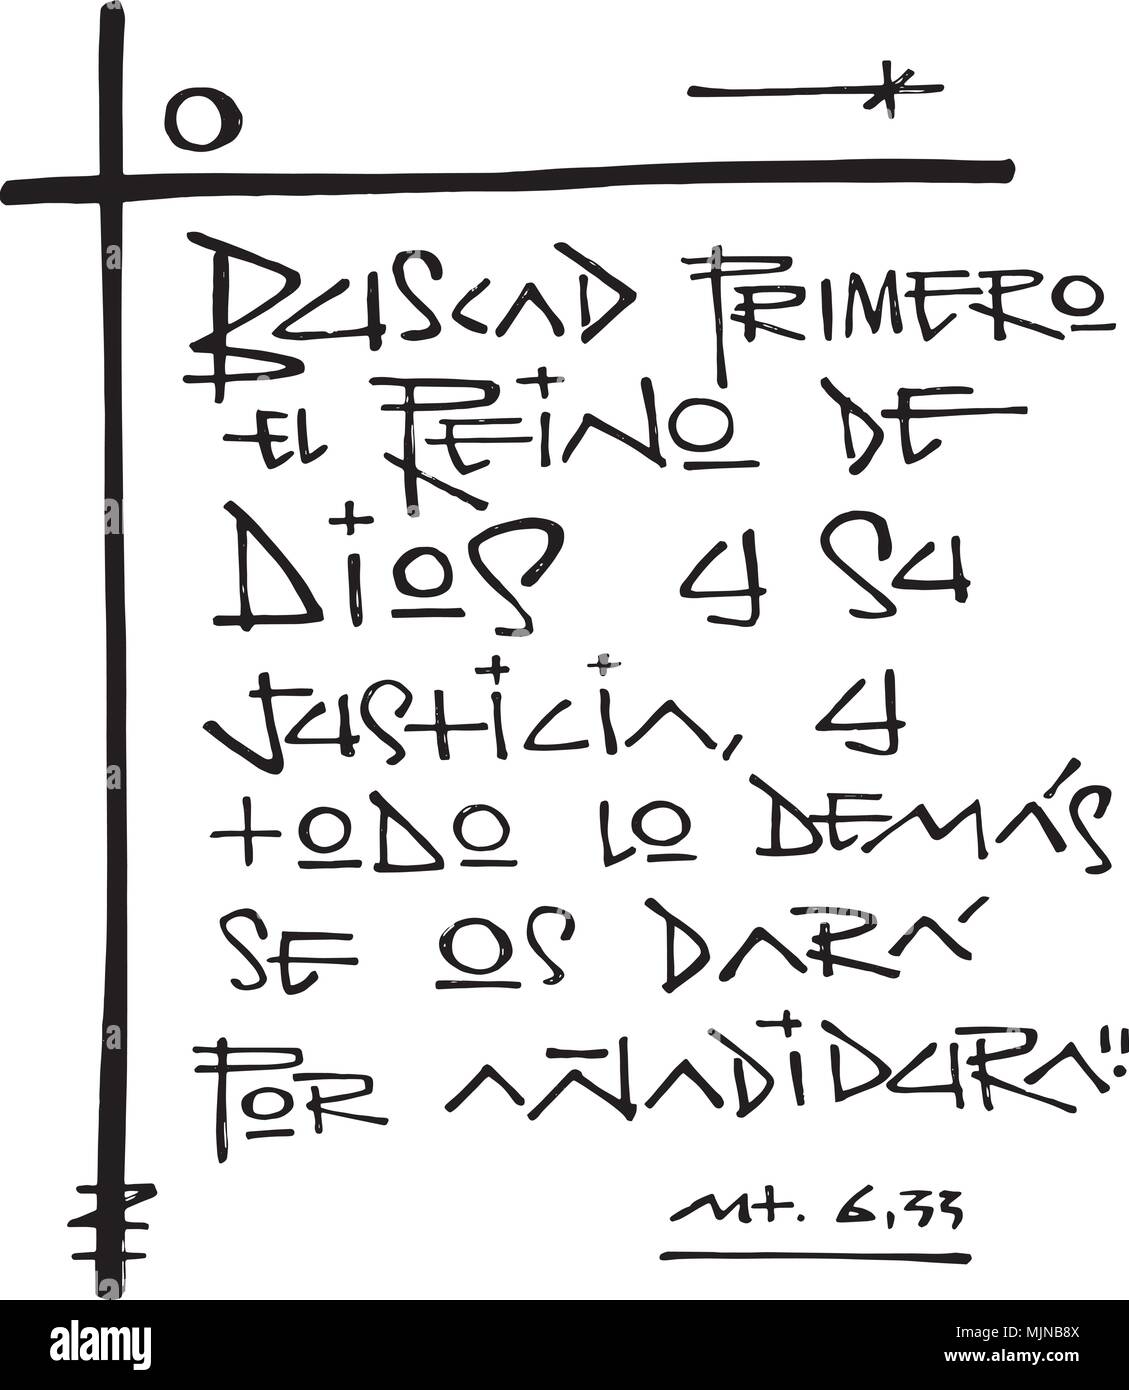 Buscad Primero
el Reino de
Dios y su
Justicia, y
todo lo demás
se os dará
por añadidura!!
Mt. 6,33
alamy
Image ID: MJNB8X
www.alamy.com